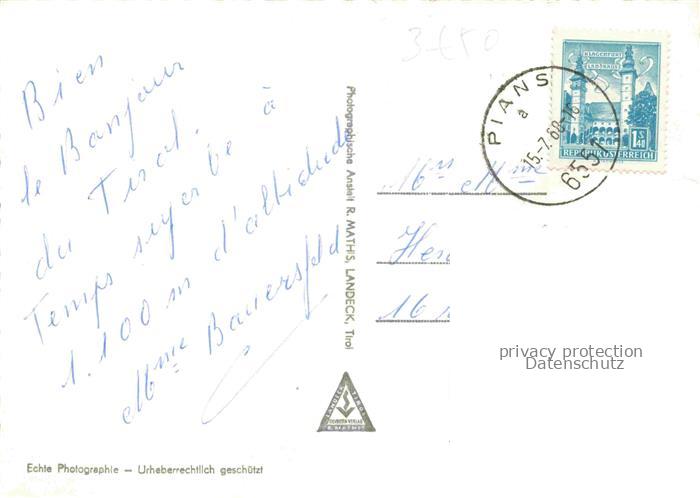 Bien
le Bonjour
du Tirol.
Temps superbe à
1.100 m d'altitude
Mme Bauersfeld
Photographische Anstalt R. MATHIS, LANDECK, Tirol
LANDECK TIROL
R. MATHIS
Echte Photographie — Urheberrechtlich geschützt
3-€50
KLAGENFURT
LANDHAUS
1 S.
40
REPUBLIK ÖSTERREICH
PIANS
a
15.-7.68-16
6551
Mr Mme
Hen
16
privacy protection
Datenschutz